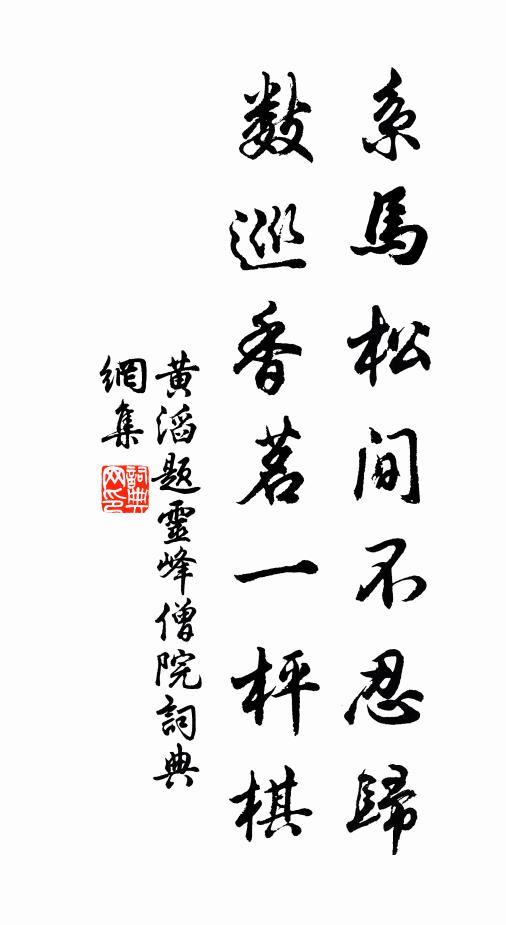 系馬松間不忍歸
數巡香茗一枰棋
黄滔题靈峰僧院詞典
網集
詞典
网印